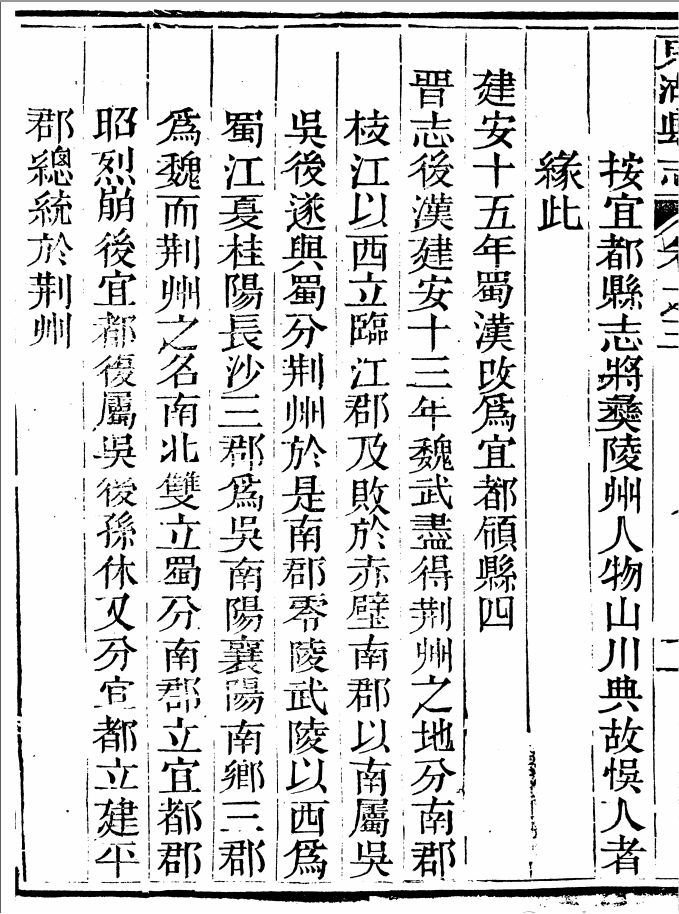 東湖縣志 卷之三 二
按宜都縣志將彝陵州人物山川典故悞人者
緣此
建安十五年蜀漢改爲宜都領縣四
晉志後漢建安十三年魏武盡得荆州之地分南郡
枝江以西立臨江郡及敗於赤壁南郡以南屬吳
吳後遂與蜀分荆州於是南郡零陵武陵以西爲
蜀江夏桂陽長沙三郡爲吳南陽襄陽南鄉三郡
爲魏而荆州之名南北雙立蜀分南郡立宜都郡
昭烈崩後宜都復屬吳後孫休又分宜都立建平
郡總統於荆州